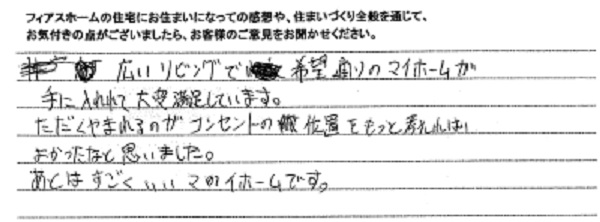 フィアスホームの住宅にお住まいになっての感想や、住まいづくり全般を通じて、
お気付きの点がございましたら、お客様のご意見をお聞かせください。
広いリビングで 希望通りのマイホームが
手に入れれて大変満足しています。
ただくやまれるのがコンセントの 位置をもっと考えれば
よかったなと思いました。
あとはすごくいいマイホームです。